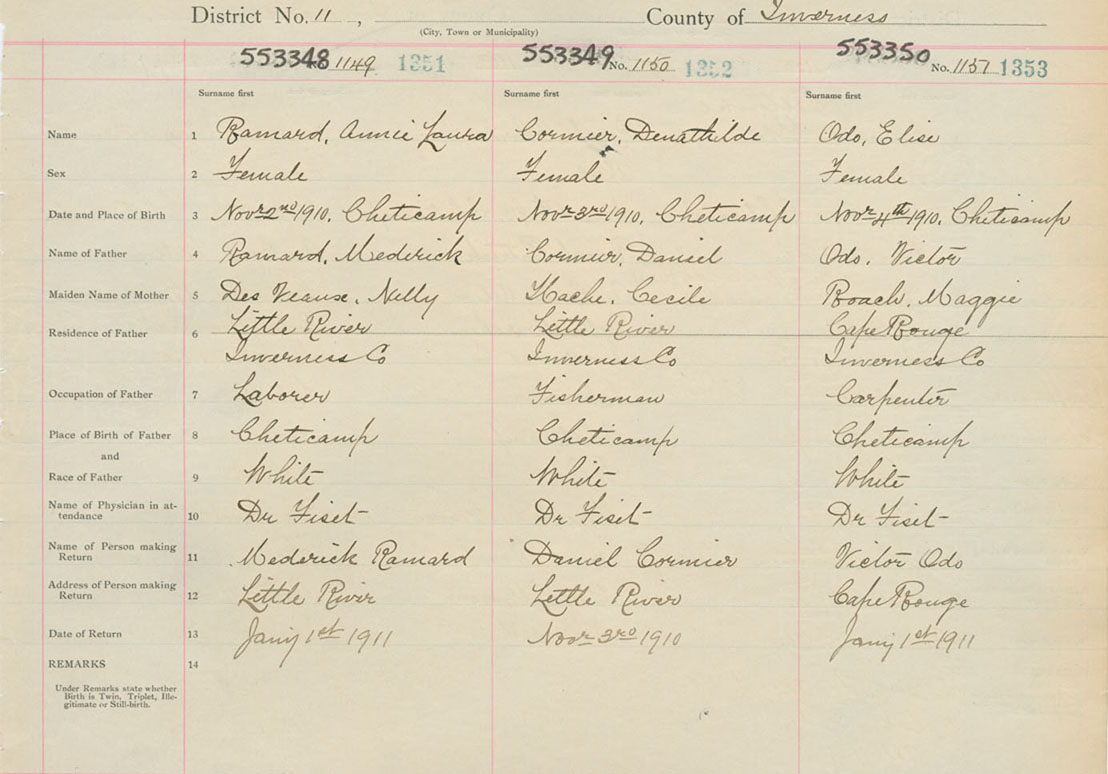 District No. 11 , County of Inverness
(City, Town or Municipality)
553348 No. 1149 1351 553349 No. 1150 1352 553350 No. 1151 1353
Surname first Surname first Surname first
Name 1 Ramard, Annie Laura Cormier, Denathilde Odo, Elise
Sex 2 Female Female Female
Date and Place of Birth 3 Novr 2nd 1910, Cheticamp Novr 3rd 1910, Cheticamp Novr 4th 1910, Cheticamp
Name of Father 4 Ramard, Mederick Cormier, Daniel Odo, Victor
Maiden Name of Mother 5 Des Veause, Nelly Hache, Cecile Roach, Maggie
Residence of Father 6 Little River Little River Cape Rouge
Inverness Co Inverness Co Inverness Co
Occupation of Father 7 Laborer Fisherman Carpenter
Place of Birth of Father 8 Cheticamp Cheticamp Cheticamp
and
Race of Father 9 White White White
Name of Physician in at-
tendance 10 Dr Fiset Dr Fiset Dr Fiset
Name of Person making
Return 11 Mederick Ramard Daniel Cormier Victor Odo
Address of Person making
Return 12 Little River Little River Cape Rouge
Date of Return 13 Jany 1st 1911 Novr 3rd 1910 Jany 1st 1911
REMARKS 14
Under Remarks state whether
Birth is Twin, Triplet, Ille-
gitimate or Still-birth.